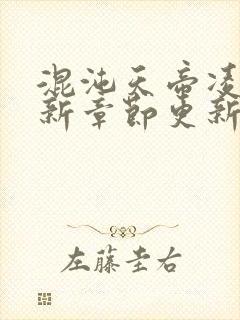 混沌天帝凌
新章节更新
左藤圭右